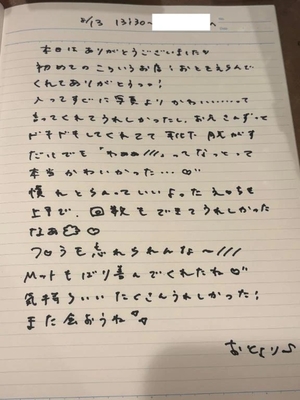 2/13 13:30~
本日はありがとうございました♡
初めてのこういうお店: おとをえらんで
くれてありがとうっ!
入ってすぐに写真よりかわいい……って
言ってくれてうれしかったし、おえさんずっと
ドキドキしてくれてて
だけでも「わぁぁ///」ってなっとって
本当かわいかった…♡
慣れとらんっていいよったえっちも
上手で、回数もできてうれしかった
なぁ♡
フロうも忘れられんな〜///
Mットもばり喜んでくれたね♡
気持ちいいたくさんうれしかった!
また会おうね
おとより♪